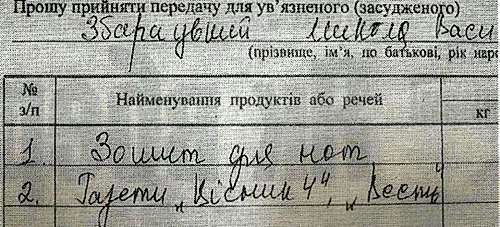 Прошу прийняти передачу для ув’язненого (засудженого)
Збараувший Микола Васи
(прізвище, ім’я, по батькові, рік наро
№ з/п Найменування продуктів або речей
кг
1. Зошит для нот
2. Газети „Вісник Ч“, „Весть“